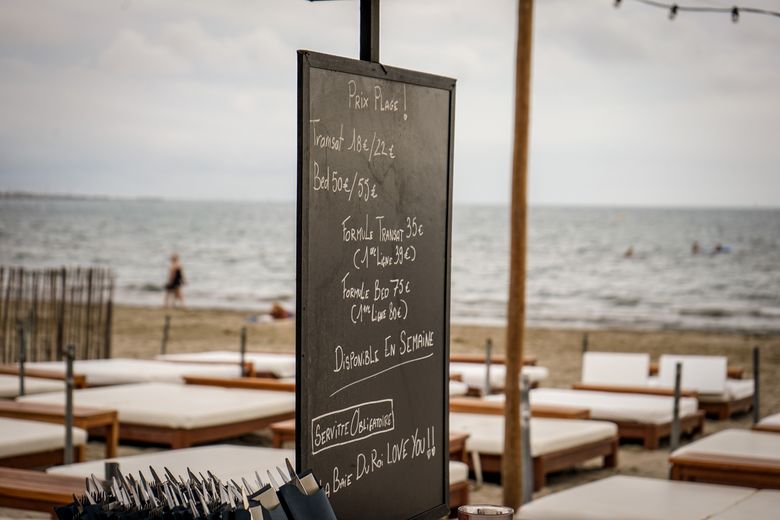 PRIX PLAGE!
Transat 18€/22€
Bed 50€/55€
FORMULE TRANSAT 35€
(1ère LIGNE 39€)
FORMULE BED 75€
(1ère LIGNE 80€)
DISPONIBLE EN SEMAINE
SERVITTE OBLIGATOIRE
LA BAIE DU ROI LOVE YOU!!